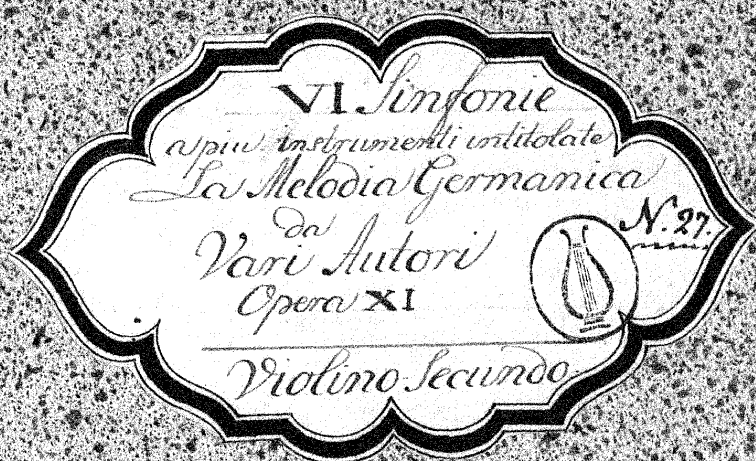 VI Sinfonie
a piu instrumenti intitolate
La Melodia Germanica
da
Vari Autori
Opera XI
N. 27.
Violino Secundo.